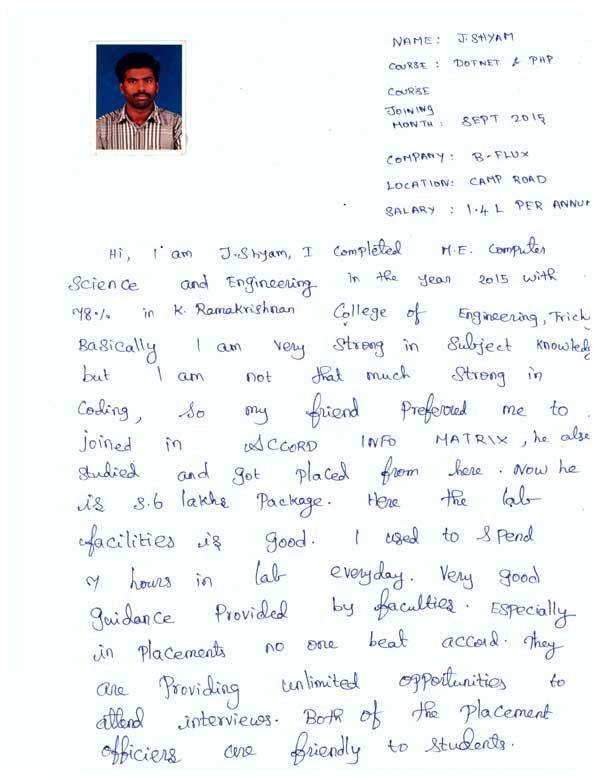 NAME: J.SHYAM
COURSE: DOTNET & PHP
COURSE
JOINING
MONTH: SEPT 2015
COMPANY: B-FLUX
LOCATION: CAMP ROAD
SALARY : 1.4 L PER ANNUM
Hi, I am J.Shyam, I Completed M.E. Computer
Science and Engineering in the year 2015 with
78% in K. Ramakrishnan College of Engineering, Trichy
Basically I am very Strong in Subject Knowledg
but I am not that much Strong in
Coding, So my friend Preferred me to
joined in ACCORD INFO MATRIX, he also
studied and got placed from here. Now he
is 3.6 lakhs Package. Here the lab
facilities is good. I used to Spend
7 hours in lab everyday. Very good
guidance Provided by faculties. Especially
in Placements no one beat accord. They
are Providing unlimited opportunities to
attend interviews. Both of the Placement
officiers are friendly to Students.